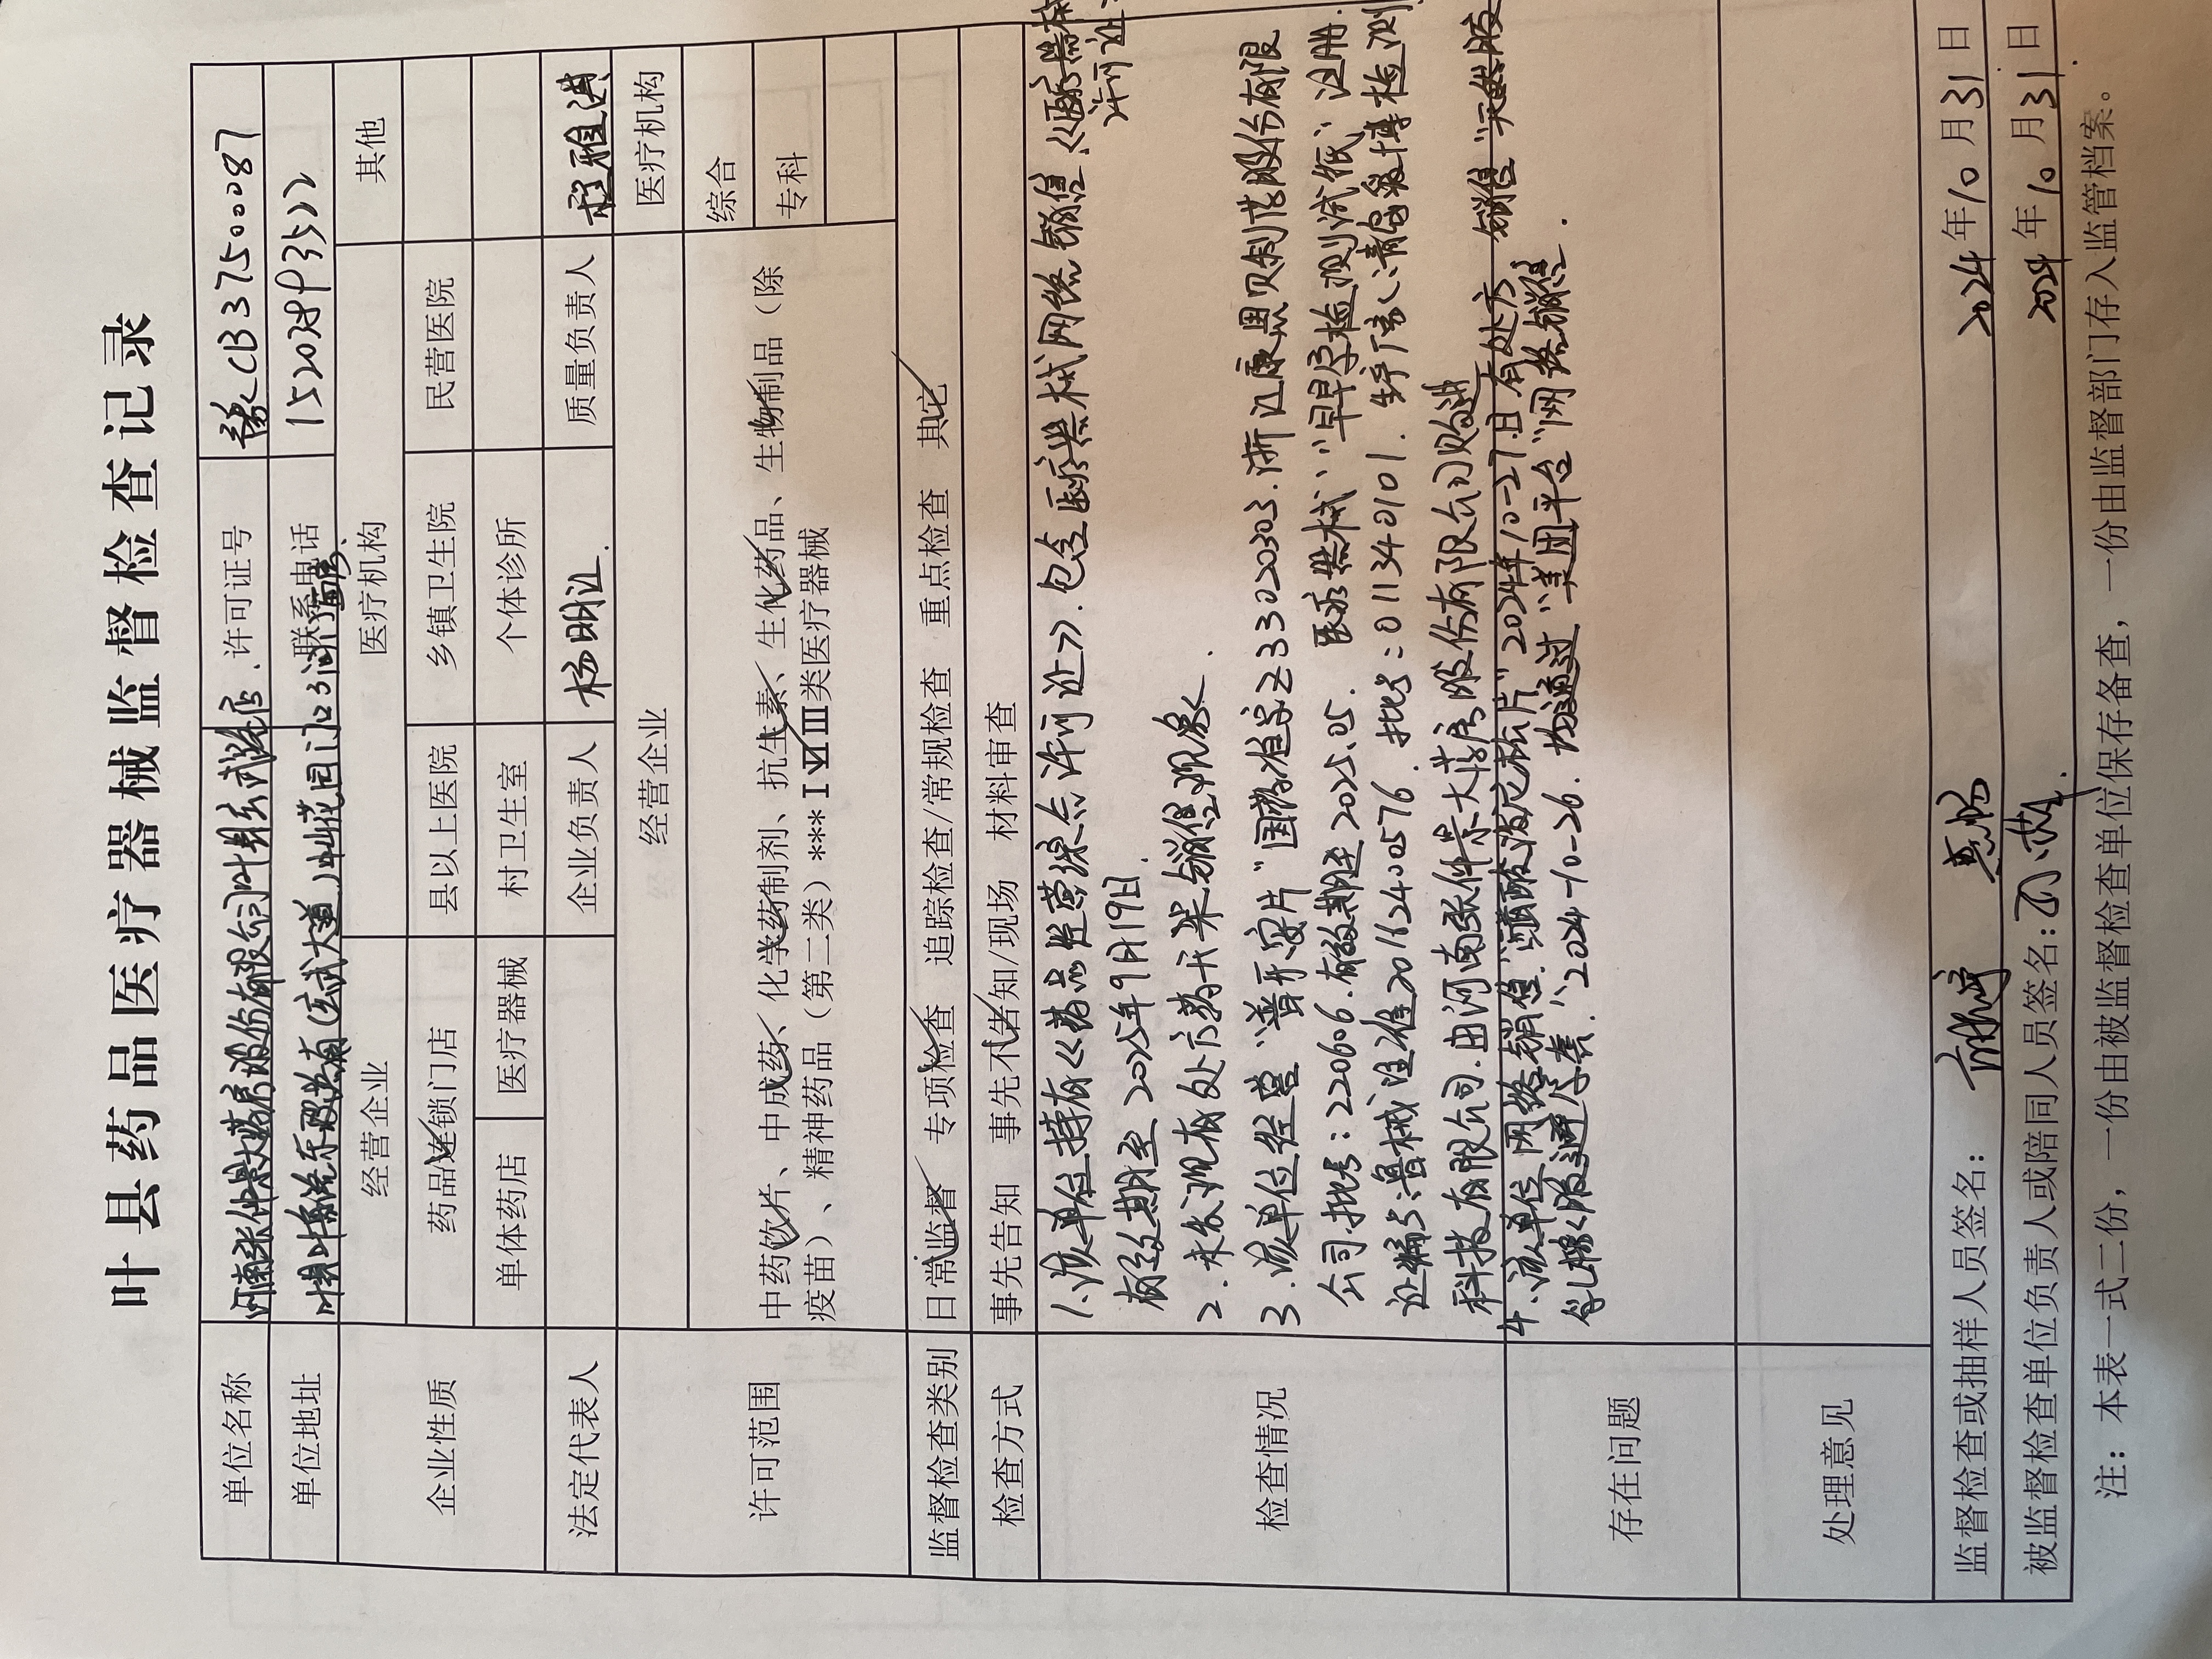 叶县药品医疗器械监督检查记录
单位名称 河南张仲景大药房股份有限公司叶县玄武路店 许可证号 豫CB3750087
单位地址 联系电话 15203893522
企业性质 经营企业 医疗机构 其他
药品连锁门店 县以上医院 乡镇卫生院 民营医院
单体药店 医疗器械 村卫生室 个体诊所
法定代表人 企业负责人 杨明江 质量负责人 程雅洪
许可范围 经营企业 医疗机构
中药饮片、中成药、化学药制剂、抗生素、生化药品、生物制品(除
疫苗)、精神药品(第二类)*** I VI III类医疗器械
综合
专科
监督检查类别 日常监督 专项检查 追踪检查/常规检查 重点检查 其它
检查方式 事先告知 事先不告知/现场 材料审查
检查情况
1.该单位持有《药品经营许可证》.包含医疗器械网络销售《医疗器械
许可证
有效期至2025年9月19日.
2.未发现有处方药开架销售现象.
3.该单位经营“普乐安片”国药准字Z33020303.浙江康恩贝制药股份有限
公司批号:220606.有效期至2025.05. 医疗器械“早早孕检测试纸”注册
证编号:鲁械注准20162400576.批号:011340101.生产厂家:青岛汉唐检测
科技有限公司.由河南张仲景大药房股份有限公司购进
4.该单位网络销售“ 片”2024年10-27日有处方 销售“天然胶
乳橡胶避孕套”2024-10-26.均通过“美团平台”网络销售.
存在问题
处理意见
监督检查或抽样人员签名: 2024年10月31日
被监督检查单位负责人或陪同人员签名: 2024年10月31日
注:本表一式二份,一份由被监督检查单位保存备查,一份由监督部门存入监管档案。